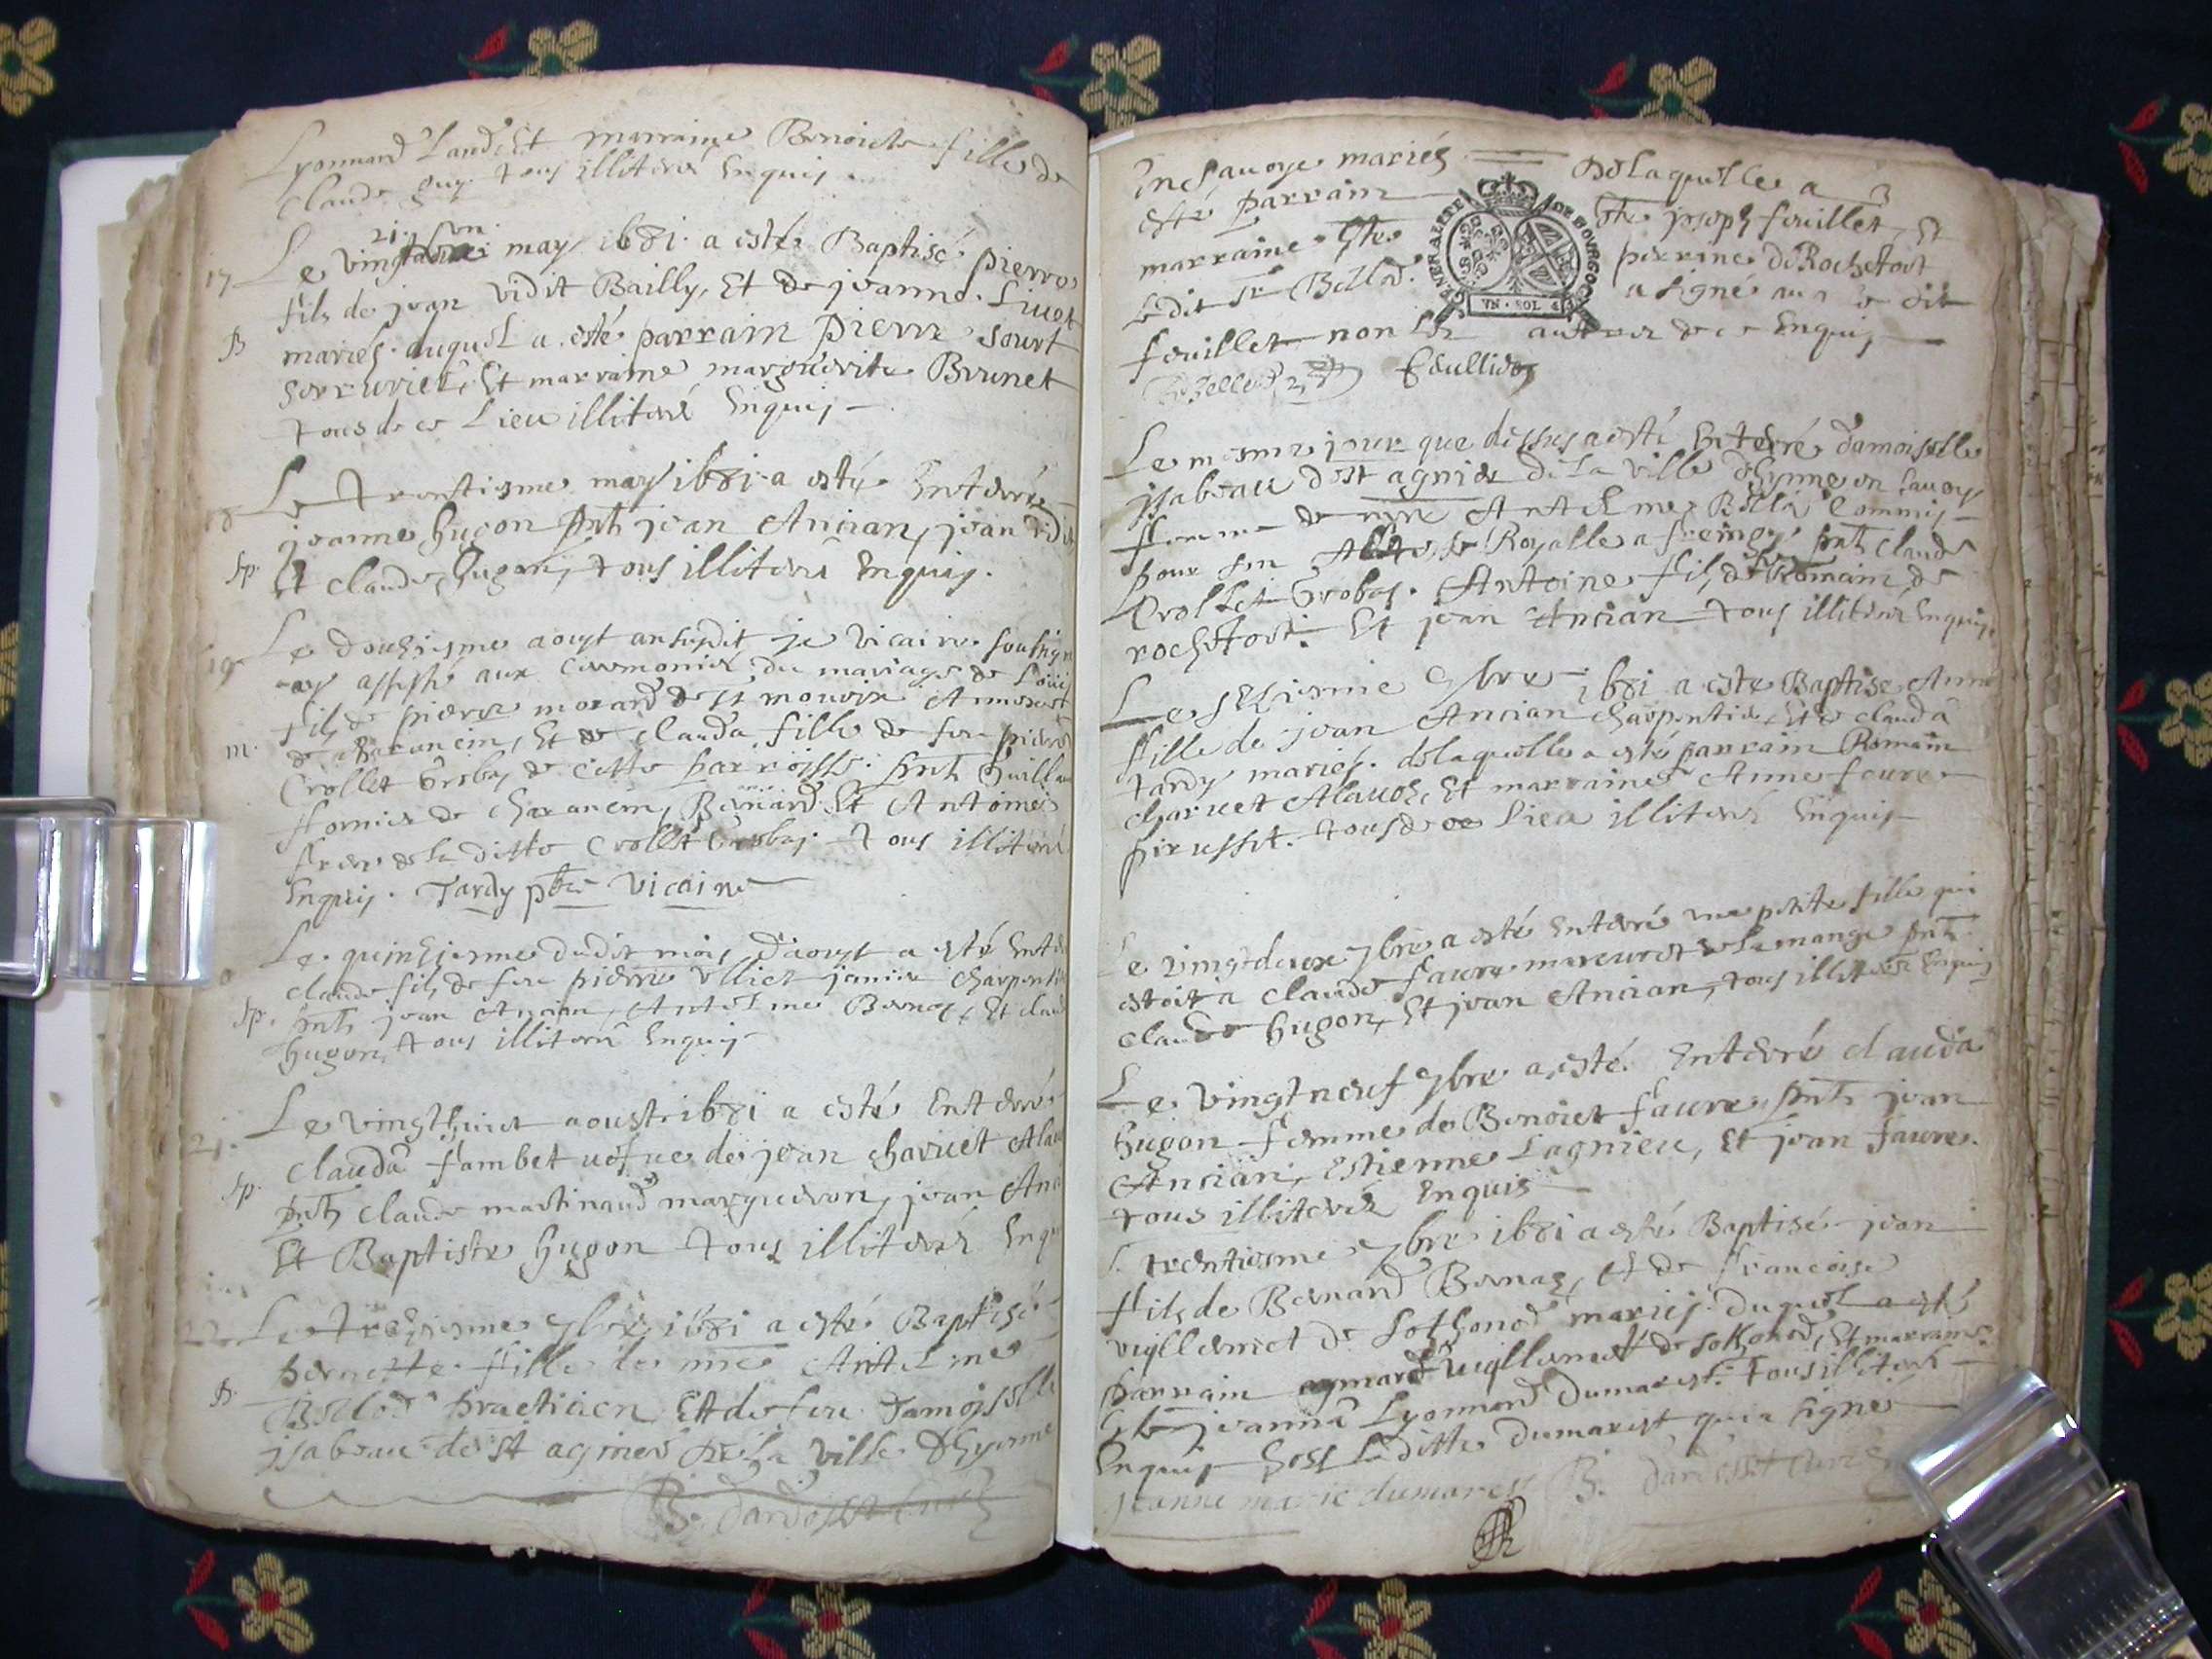 Lyonnard Land Et marraine Benoicte fille de
Claude guy tous illiteré Enquis
21 son
17 Le vingt may 1681 a esté Baptisé pierre
fils de jean vidit Bailly, Et de jeanne Livet
B mariés. auquel a esté parrain pierre sourt
serrurier, Et marraine marguerite Brunet
tous de ce Lieu illiteré Enquis
18 Le trentiesme may 1681 a esté Enterré
jeanne hugon pnts jean Ancian, jean vidit
sp. Et claude hugon, tous illiteré Enquis.
19 Le douziesme aoust an susdit je vicaire soubsigné
ay assisté aux ceremonies du mariage de Louis
fils de pierre morard de st mouvix Annexe
m. de charancin, Et de clauda fille de feu pierre
Crollet Grobas de cette parroisse. pnts Guillau
fornier de charancin, Bernard Et Antoine
frere de la ditte Crollet Grobas tous illiteré
Enquis. Tardy pbre vicaire
Le quinziesme dudit mois d'aoust a esté Enterré
claude fils de feu pierre Ulliet janin charpentier
sp. pnts jean Ancian, Antelme Bernos, Et claude
hugon, tous illiteré Enquis
21. Le vingthuict aoust 1681 a esté Enterré
sp. Clauda fambet vefve de jean charvet Alavo
pnts claude martinand marqueron, jean Anci
Et Baptiste hugon tous illiterés Enqu
22. Le treziesme 7bre 1681 a esté Baptisé
B. pernette fille de mre Antelme
Bellod practicien Et de feu Damoiselle
jsabeau de st agnies de la ville Dhyenne
B. Dardosset curé
En Savoye mariés De laquelle a
esté parrain Gbr joseph feuillet, Et
marraine Gbe perrine de Rochefort
GENERALITE DE BOURGOG
VN · SOL
Ledit sr Bellod a signé avec le dit
feuillet non les autres de ce Enquis
Feuillet
Le mesme jour que dessus a esté Enterré damoiselle
jsabeau de st agnies de La ville dhyenne en Savoye
femme de mre Antelme Bellod Commis
pour son Altesse Royalle a pnts claude
Crollet Grobas. Antoine fils de Romain de
rochefort. Et jean Ancian tous illiterés Enquis.
Le seziesme 7bre 1681 a esté Baptisé Anne
fille de jean Ancian charpentier, Et de clauda
tardy mariés. de laquelle a esté parrain Romain
charvet Alavoz, Et marraine Anne faure
pirusset. tous de ce Lieu illiterés Enquis
Le vingtdeux 7bre a esté Enterré une petite fille qui
estoit a claude faure mareuret de la mange pnts
claude hugon, Et jean Ancian, tous illiterés Enquis
Le vingtneuf 7bre a esté Enterré clauda
hugon femme de Benoict faure, pnts jean
Ancian, Estienne Lagnieu, Et jean faure.
tous illiterés Enquis
L trentiesme 7bre 1681 a esté Baptisé jean
fils de Bernard Bernaz, Et de francoise
vuillermet de Sothonod mariés. duquel a esté
parrain aymard vuillermet de sothonod, Et marraine
Gbe jeanne Lyonnard Dumarest. Tous illiterés
Enquis hors Laditte Dumarest qui a signé
jeanne marie dumarest B. Dardosset curé